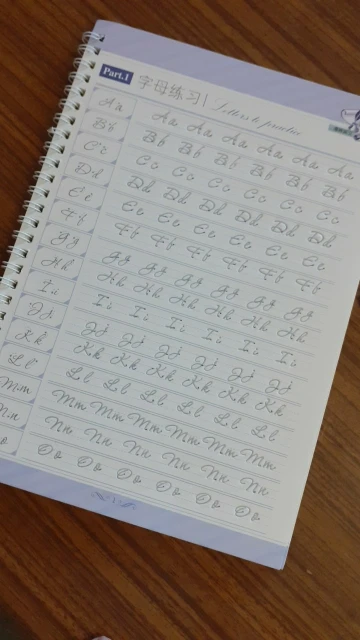 Part.1 字母练习 | Letters to practice
Aa Aa Aa Aa Aa Aa Aa
Bb Bb Bb Bb Bb Bb Bb
Cc Cc Cc Cc Cc Cc Cc
Dd Dd Dd Dd Dd Dd Dd
Ee Ee Ee Ee Ee Ee Ee
Ff Ff Ff Ff Ff Ff Ff
Gg Gg Gg Gg Gg Gg Gg
Hh Hh Hh Hh Hh Hh Hh
Ii Ii Ii Ii Ii Ii Ii
Jj Jj Jj Jj Jj Jj Jj
Kk Kk Kk Kk Kk Kk Kk
Ll Ll Ll Ll Ll Ll Ll
Mm Mm Mm Mm Mm Mm Mm
Nn Nn Nn Nn Nn Nn Nn
Oo Oo Oo Oo Oo Oo